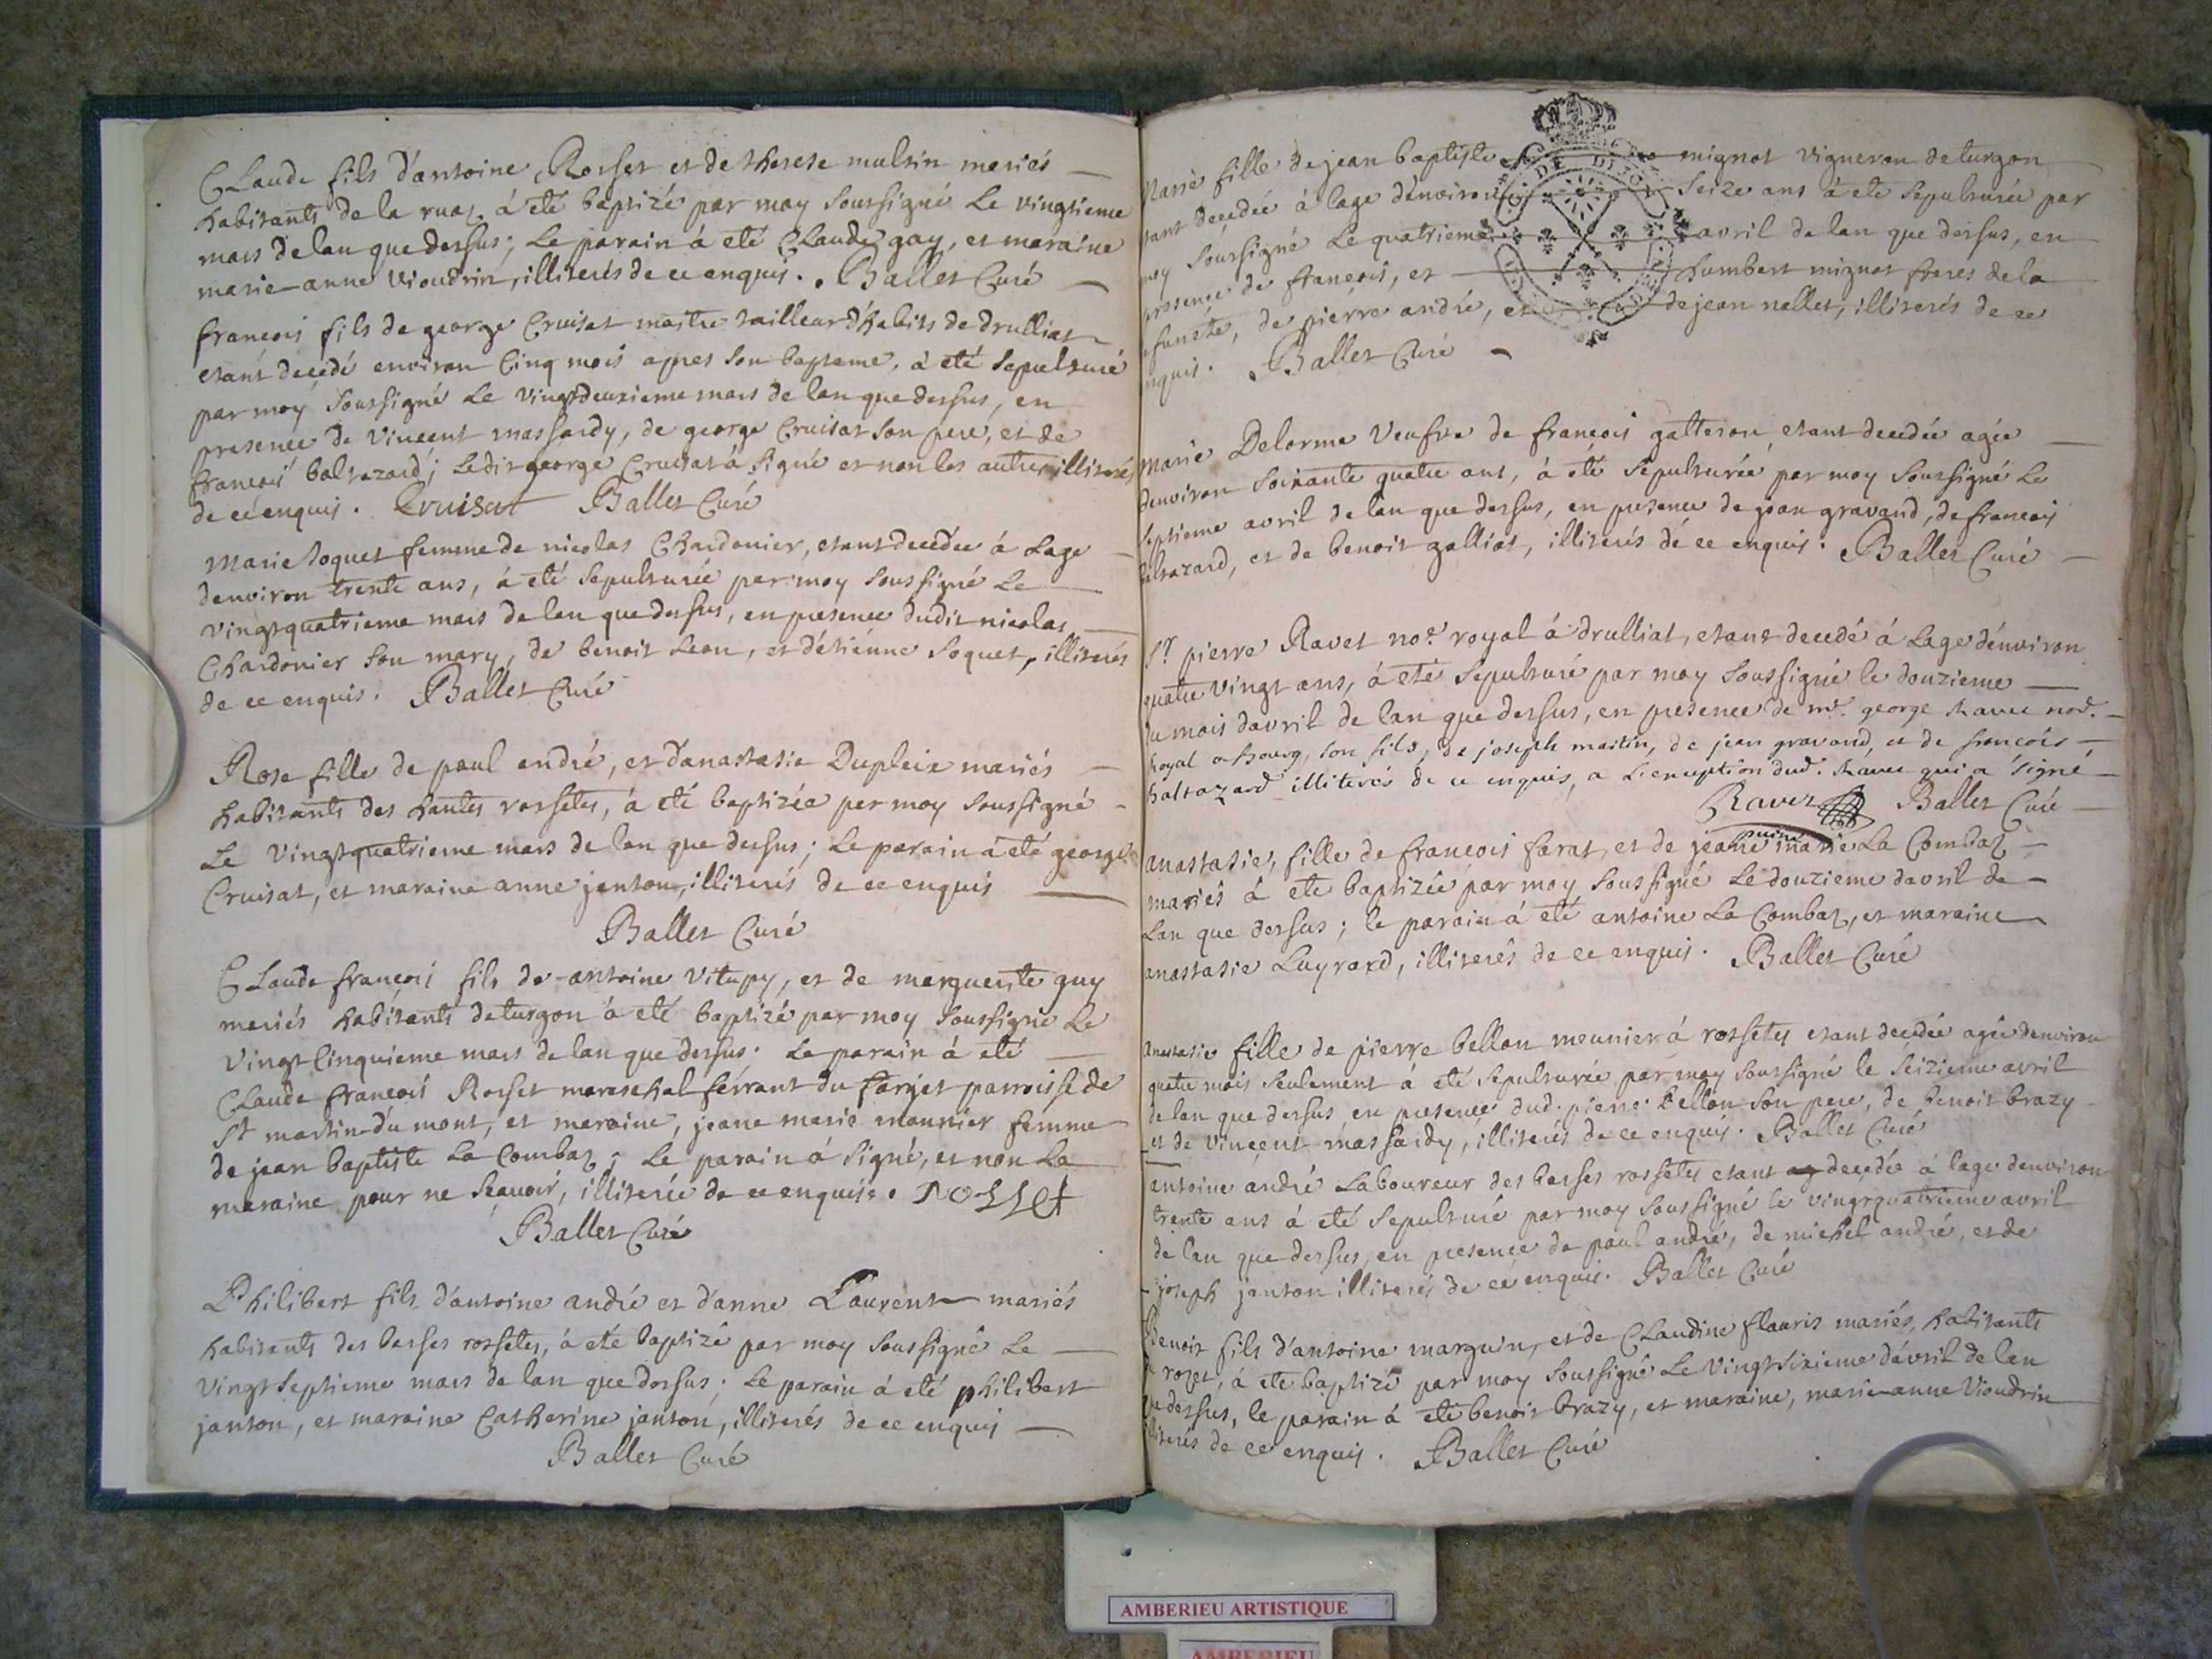 Claude fils d'antoine Rosset et de therese multin mariés
habitants de la ruaz á eté baptizé par moy soussigné Le vingtieme
mars de lan que dessus; Le parain á eté Claude gay, et maraine
marie-anne Vioudrin, illiterés de ce enquis. Ballet Curé
francois fils de george Cruisat maitre tailleur d'habits de drulliat
etant decedé environ Cinq mois apres son bapteme, á eté sepulturé
par moy soussigné Le Vingtdeuxieme mars de lan que dessus, en
presence de Vincent massardy, de george Cruisat son pere, et de
francois baltazard; Ledit george Cruisat á signé et non les autres illiterés
de ce enquis. Cruisat Ballet Curé
Marie soquet femme de nicolas Chardonier, etant decedée á Lage
denviron trente ans, á eté sepulturée par moy soussigné Le
Vingtquatrieme mars de lan que dessus, en presence dudit nicolas
Chardonier son mary, de benoit Leon, et d'étiénne soquet, illiterés
de ce enquis. Ballet Curé
Rose fille de paul andré, et d'anastasie Dupleix mariés
habitants des hautes rossetes, á eté baptizée par moy soussigné
Le Vingtquatrieme mars de lan que dessus; Le parain á eté george
Cruisat, et maraine anne janton, illiterés de ce enquis
Ballet Curé
Claude francois fils de antoine Vitupy, et de marguerite guy
mariés habitants de turgon á eté baptizé par moy soussigné Le
Vingt Cinquieme mars de lan que dessus. Le parain á eté
Claude francois Rosset mareschal ferrant du farjet parroisse de
St martin du mont, et maraine, jeane marie mounier femme
de jean baptiste La Combaz; Le parain á signé, et non La
maraine pour ne scavoir, illiterée de ce enquise. rosset
Ballet Curé
Philibert fils d'antoine andré et d'anne Laurent mariés
habitants des basses rossetes, á eté baptizé par moy soussigné Le
Vingt septieme mars de lan que dessus; Le parain á eté philibert
janton, et maraine Catherine janton, illiterés de ce enquis
Ballet Curé
Marie fille de jean baptiste mignot vigneron de turgon
tant decedée á lage d'énviron seize ans á eté sepulturée par
moy soussigné Le quatrieme avril de lan que dessus, en
presence de francois, et humbert mignot freres de la
funéte, de piérre andré, et de jean nallet, illiterés de ce
nquis. Ballet Curé
DE DIJON
Marie Delorme Veufve de francois galteron etant decedée agée
denviron soixante quatre ans, á été sepulturée par moy soussigné Le
septieme avril de lan que dessus, en presence de jean gravand, de francois
baltazard, et de benoit galliat, illiterés de ce enquis. Ballet Curé
Sr. pierre Ravet nore. royal á drulliat, etant decedé á Lage d'énviron
quatre Vingt ans, á eté sepulturé par moy soussigné le douzieme
du mois davril de lan que dessus, en presence de mr. george Ravet nore.
Royal a bourg, son fils, de joseph martin, de jean gravand, et de francois
baltazard illiterés de ce enquis, a L'exception dud. Ravet qui a signé
Ravet Ballet Curé
anastasie, fille de francois farat, et de jeane marie La Combaz
mariés á eté baptizée par moy soussigné Le douzieme davril de
Lan que dessus; le parain á eté antoine La Combaz, et maraine
anastasie Luyrard, illiterés de ce enquis. Ballet Curé
Anastasie fille de pierre bellon meunier á rossetes etant decedée agée denviron
quatre mois seulement á eté sepulturée par moy soussigné le seizieme avril
de lan que dessus en presence dud. pierre bellon son pere, de benoit brazy
et de vincent massardy, illiterés de ce enquis. Ballet Curé
antoine andré Laboureur des basses rossetes etant decedée á lage denviron
trente ans á eté sepulturé par moy soussigné le vingtquatrieme avril
de lan que dessus, en presence de paul andré, de michel andré, et de
joseph janton illiterés de ce enquis. Ballet Curé
Benoit fils d'antoine marguin, et de Claudine flauris mariés, habitants
rozet, á eté baptizé par moy soussigné Le Vingt sixieme d'avril de lan
que dessus, le parain á eté benoit brazy, et maraine, marie-anne Vioudrin
illiterés de ce enquis. Ballet Curé
AMBERIEU ARTISTIQUE
AMBERIEU